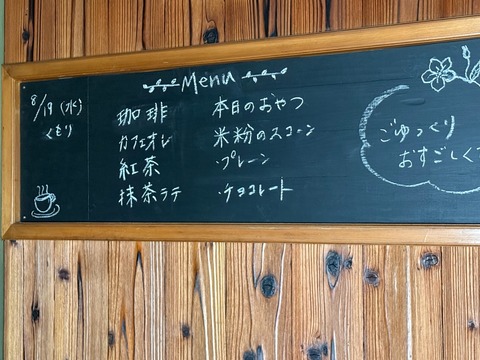 8/19 (水)
くもり
Menu
珈琲
カフェオレ
紅茶
抹茶ラテ
本日のおやつ
米粉のスコーン
・プレーン
・チョコレート
ごゆっくり
おすごしく